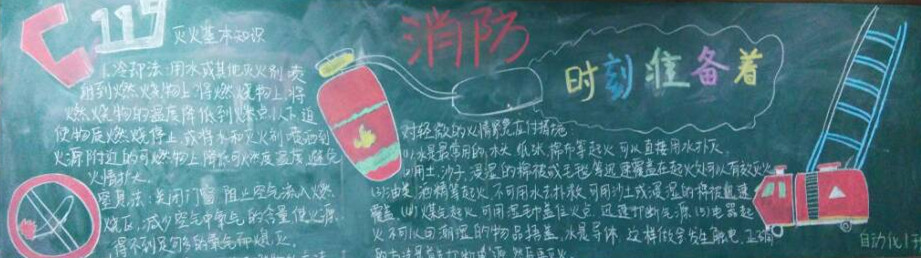 119
灭火基本知识
1.冷却法:用水或其他灭火剂喷
射到燃烧物上,将燃烧物上,将
燃烧物的温度降低到燃点以下迫
使物质燃烧停止,或将水和灭火剂喷洒到
火源附近的可燃物上降低可燃物温度,避免
火情扩大。
窒息法:关闭门窗,阻止空气流入燃
烧区,减少空气中氧气的含量,使火源
得不到足够多的氧气而熄灭。
消防
时刻准备着
对轻微的火情紧急应付措施
(1)水是最常用的,木头 纸张 棉布等起火,可以直接用水扑灭。
用土、沙子、浸湿的棉被或毛毯等迅速覆盖在起火处,可以有效灭火
油类、酒精等起火,不可用水去扑救,可用沙土或浸湿的棉被迅速
覆盖 (4)煤气起火,可用湿毛巾盖住火点,迅速切断气源 (5)电器起
火不可以用潮湿的物品捂盖,水是导体,这样做会发生触电,正确
的方法是首先切断电源,然后再灭火。
自动化1